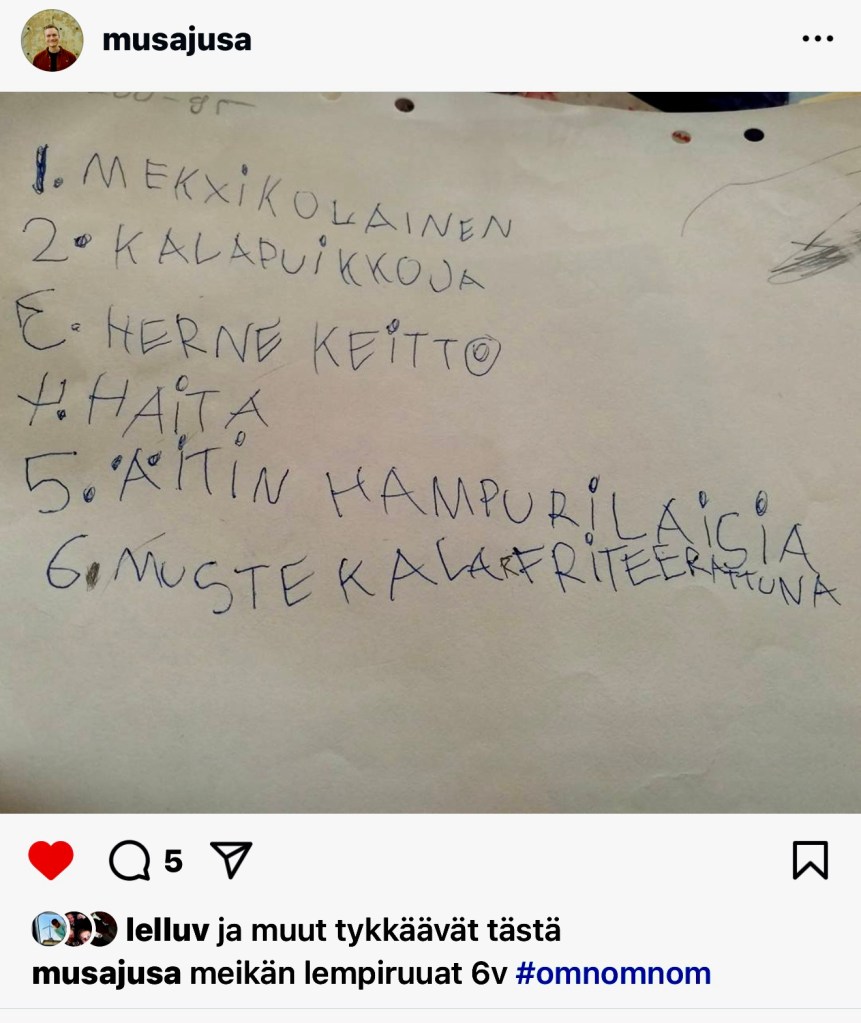 musajusa
1. MEKXIKOLAINEN
2. KALAPUIKKOJA
3. HERNE KEITTO
4. HAITA
5. ÄITIN HAMPURILAISIA
6. MUSTEKALA FRITEERATTUNA
5
lelluv ja muut tykkäävät tästä
musajusa meikän lempiruuat 6v #omnomnom